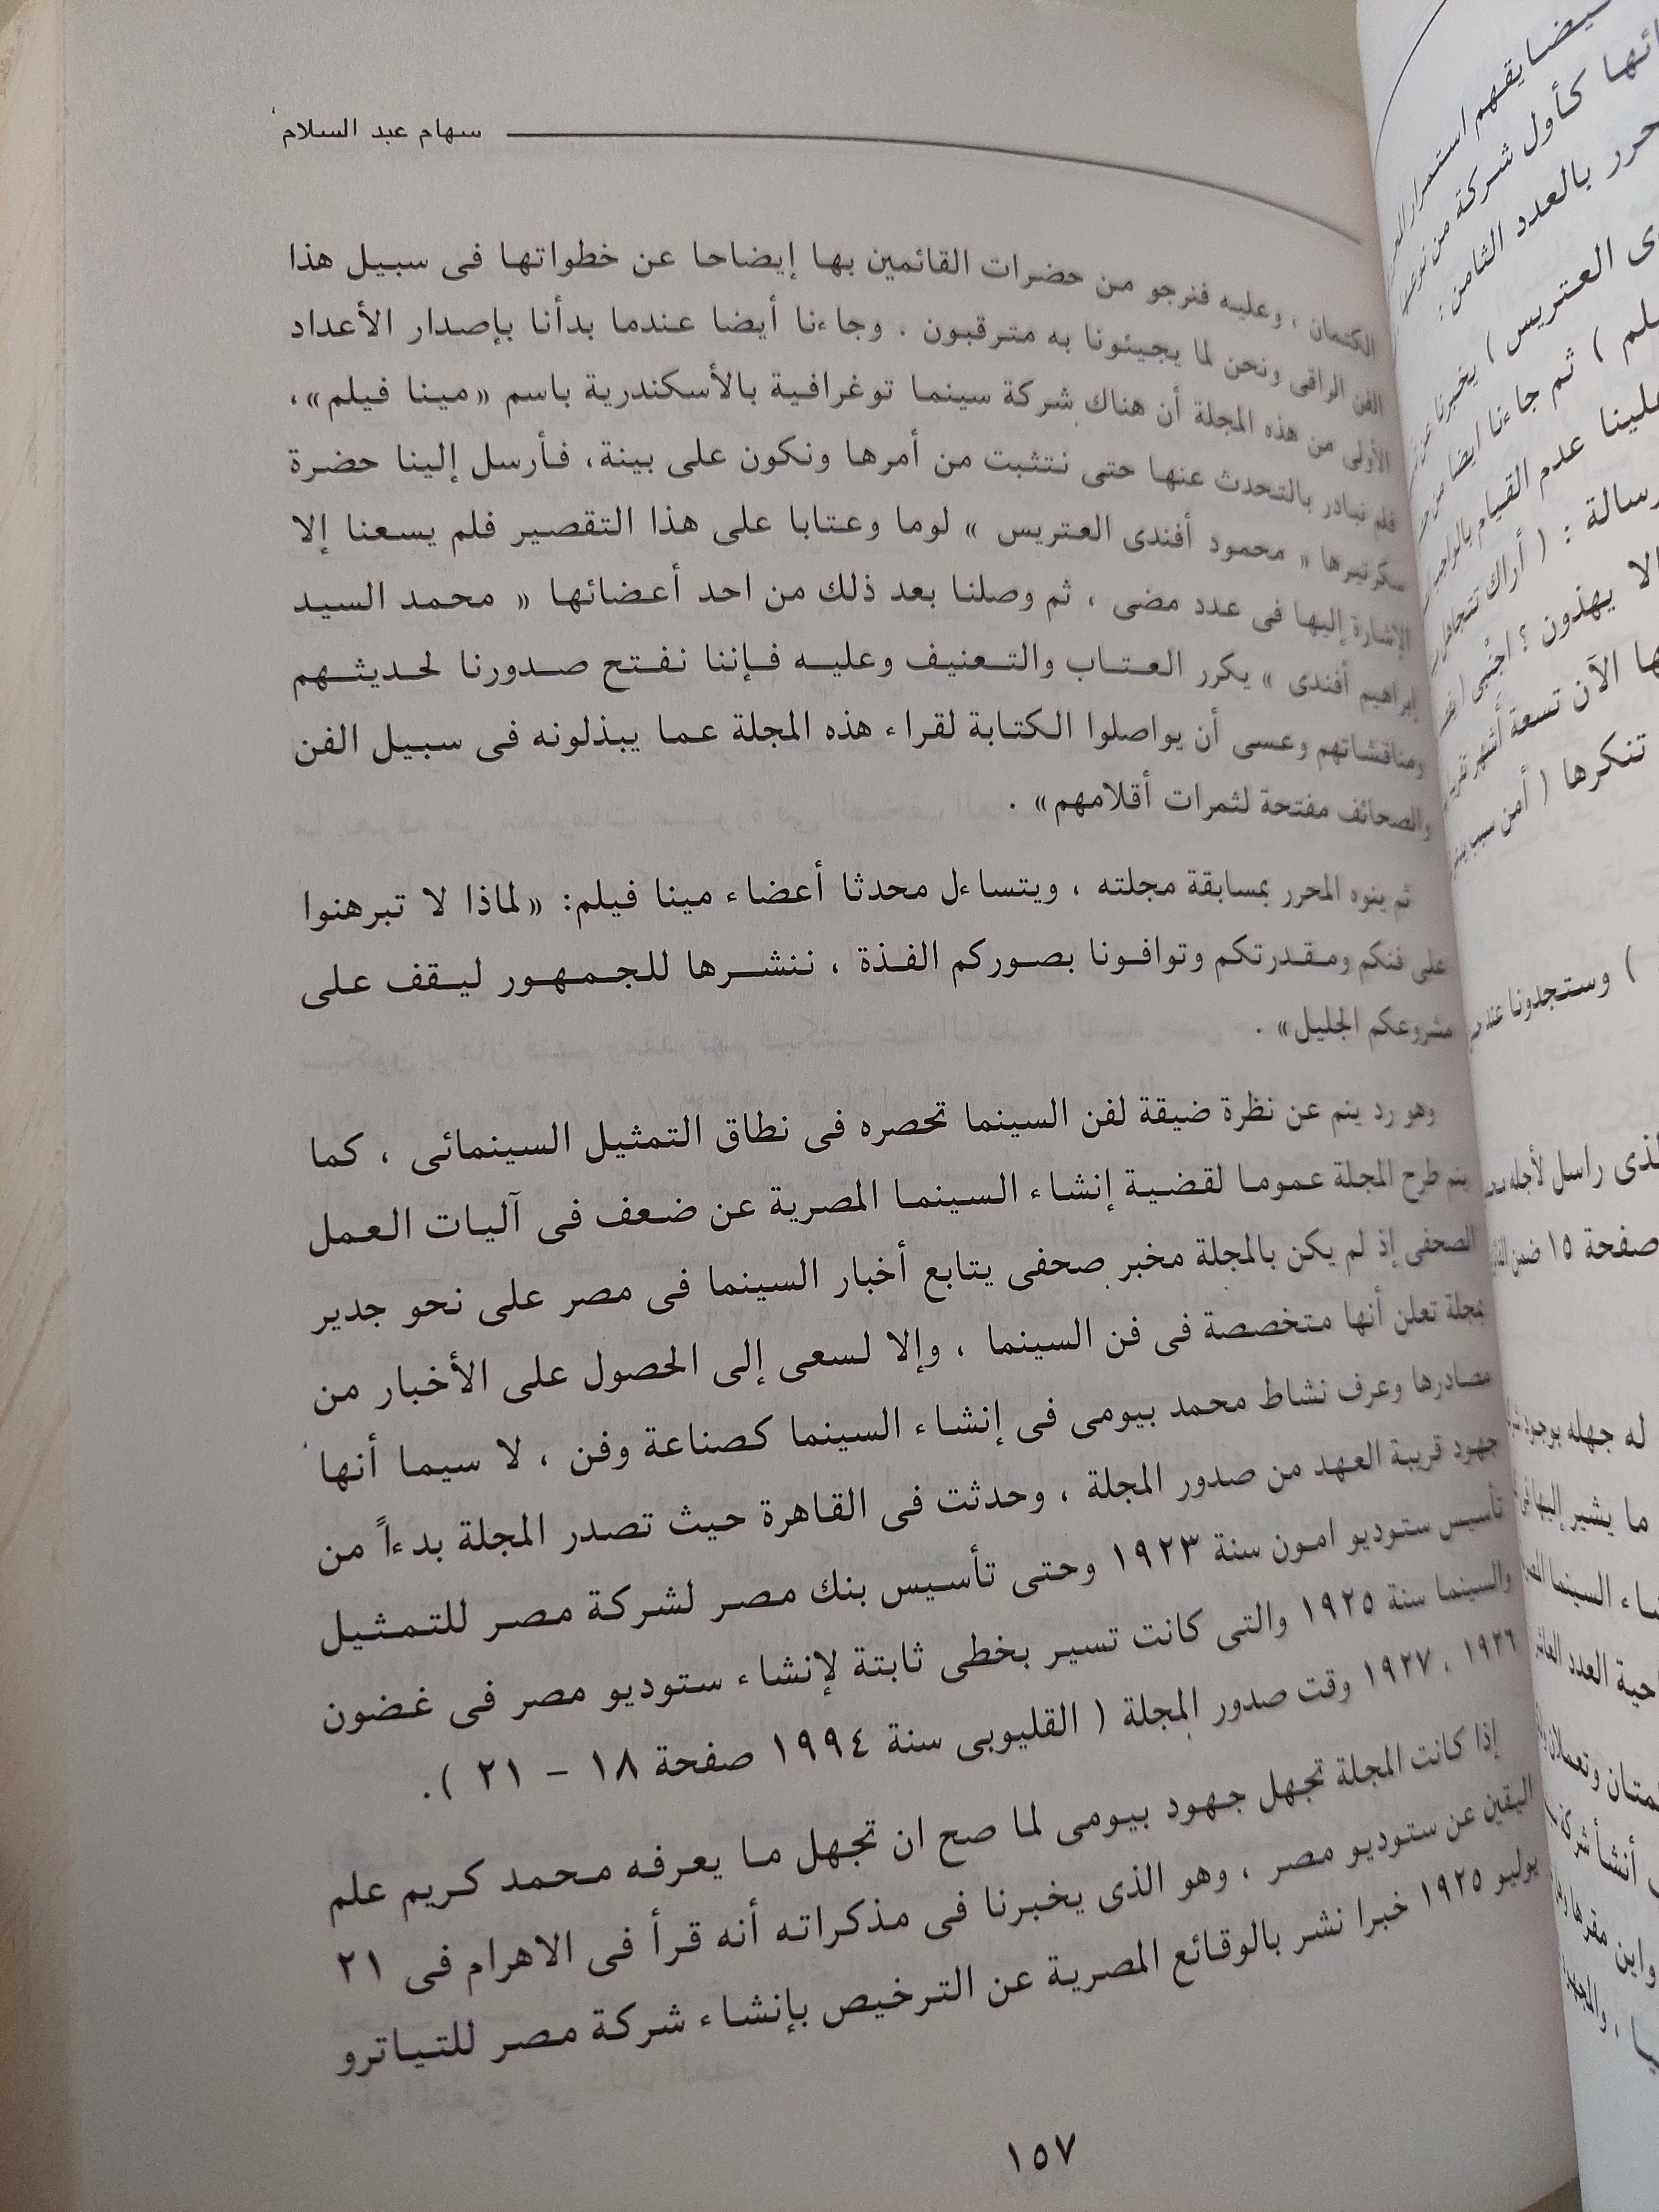 سهام عبد السلام
الكتمان ، وعليه فنرجو من حضرات القائمين بها إيضاحا عن خطواتها فى سبيل هذا
الفن الراقى ونحن لما يجيئونا به مترقبون . وجاءنا أيضا عندما بدأنا بإصدار الأعداد
الأولى من هذه المجلة أن هناك شركة سينما توغرافية بالأسكندرية باسم «مينا فيلم»،
فلم نبادر بالتحدث عنها حتى نتثبت من أمرها ونكون على بينة، فأرسل إلينا حضرة
سكرتيرها « محمود أفندى العتريس » لوما وعتابا على هذا التقصير فلم يسعنا إلا
الإشارة إليها فى عدد مضى ، ثم وصلنا بعد ذلك من احد أعضائها « محمد السيد
إبراهيم أفندى » يكرر العتاب والتعنيف وعليه فإننا نفتح صدورنا لحديثهم
ومناقشاتهم وعسى أن يواصلوا الكتابة لقراء هذه المجلة عما يبذلونه فى سبيل الفن
والصحائف مفتحة لثمرات أقلامهم» .
ثم ينوه المحرر بمسابقة مجلته ، ويتساءل محدثا أعضاء مينا فيلم: «لماذا لا تبرهنوا
على فنكم ومقدرتكم وتوافونا بصوركم الفذة ، ننشرها للجمهور ليقف على
مشروعكم الجليل» .
وهو رد ينم عن نظرة ضيقة لفن السينما تحصره فى نطاق التمثيل السينمائى ، كما
ينم طرح المجلة عموما لقضية إنشاء السينما المصرية عن ضعف فى آليات العمل
الصحفى إذ لم يكن بالمجلة مخبر صحفى يتابع أخبار السينما فى مصر على نحو جدير
بمجلة تعلن أنها متخصصة فى فن السينما ، وإلا لسعى إلى الحصول على الأخبار من
مصادرها وعرف نشاط محمد بيومى فى إنشاء السينما كصناعة وفن ، لا سيما أنها
جهود قريبة العهد من صدور المجلة ، وحدثت فى القاهرة حيث تصدر المجلة بدءاً من
تأسيس ستوديو امون سنة ١٩٢٣ وحتى تأسيس بنك مصر لشركة مصر للتمثيل
والسينما سنة ١٩٢٥ والتى كانت تسير بخطى ثابتة لإنشاء ستوديو مصر فى غضون
١٩٢٦ ، ١٩٢٧ وقت صدور المجلة ( القليوبى سنة ١٩٩٤ صفحة ١٨ - ٢١ ).
إذا كانت المجلة تجهل جهود بيومى لما صح ان تجهل ما يعرفه محمد كريم علم
اليقين عن ستوديو مصر ، وهو الذى يخبرنا فى مذكراته أنه قرأ فى الاهرام فى ٢١
يوليو ١٩٢٥ خبرا نشر بالوقائع المصرية عن الترخيص بإنشاء شركة مصر للتياترو
١٥٧
كأول شركة من
بالعدد الثامن :
العتريس ) يخبرنا
ثم جاءنا ايضا من
علينا عدم القيام
: ( أراك
يهذون ؟
الآن تسعة أشهر
تنكرها ( أمن سبب
) وستجدونا
راسل لأجله
صفحة ١٥ ضمن
له جهله بوجود
ما يشير إليها
السينما
العدد
وتعملان
أنشأ
واين مقرها